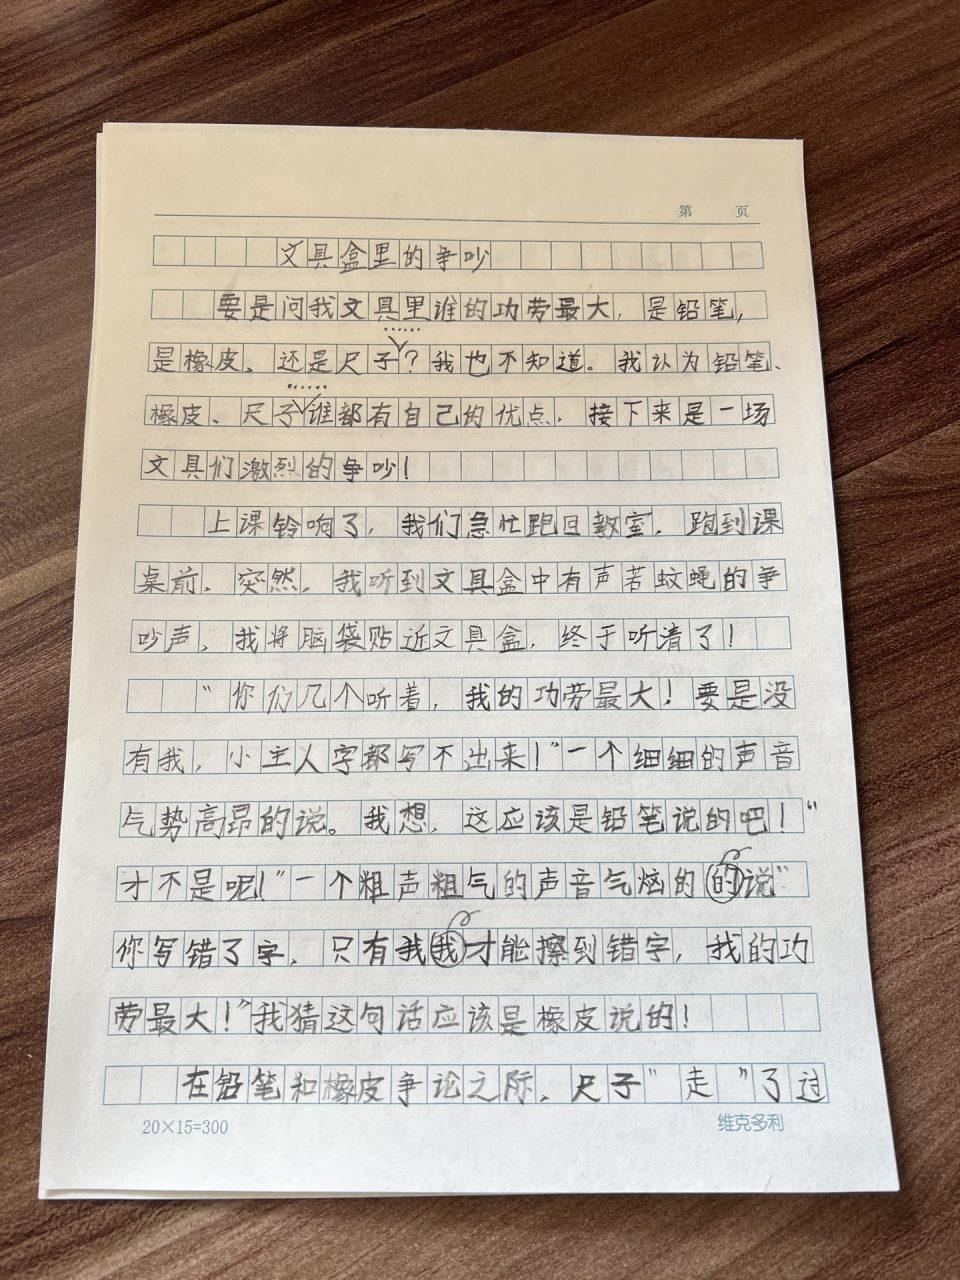 第 页
文具盒里的争吵
要是问我文具里谁的功劳最大，是铅笔，
是橡皮、还是尺子……？我也不知道。我认为铅笔、
橡皮、尺子……谁都有自己的优点，接下来是一场
文具们激烈的争吵！
上课铃响了，我们急忙跑回教室，跑到课
桌前、突然，我听到文具盒中有声若蚊蝇的争
吵声、我将脑袋贴近文具盒，终于听清了！
“你们几个听着，我的功劳最大！要是没
有我，小主人字都写不出来！”一个细细的声音
气势高昂的说。我想，这应该是铅笔说的吧！“
才不是呢！”一个粗声粗气的声音气恼的的说“
你写错了字，只有我我才能擦到错字，我的功
劳最大！”我猜这句话应该是橡皮说的！
在铅笔和橡皮争论之际、尺子“走”了过
20×15=300 维克多利